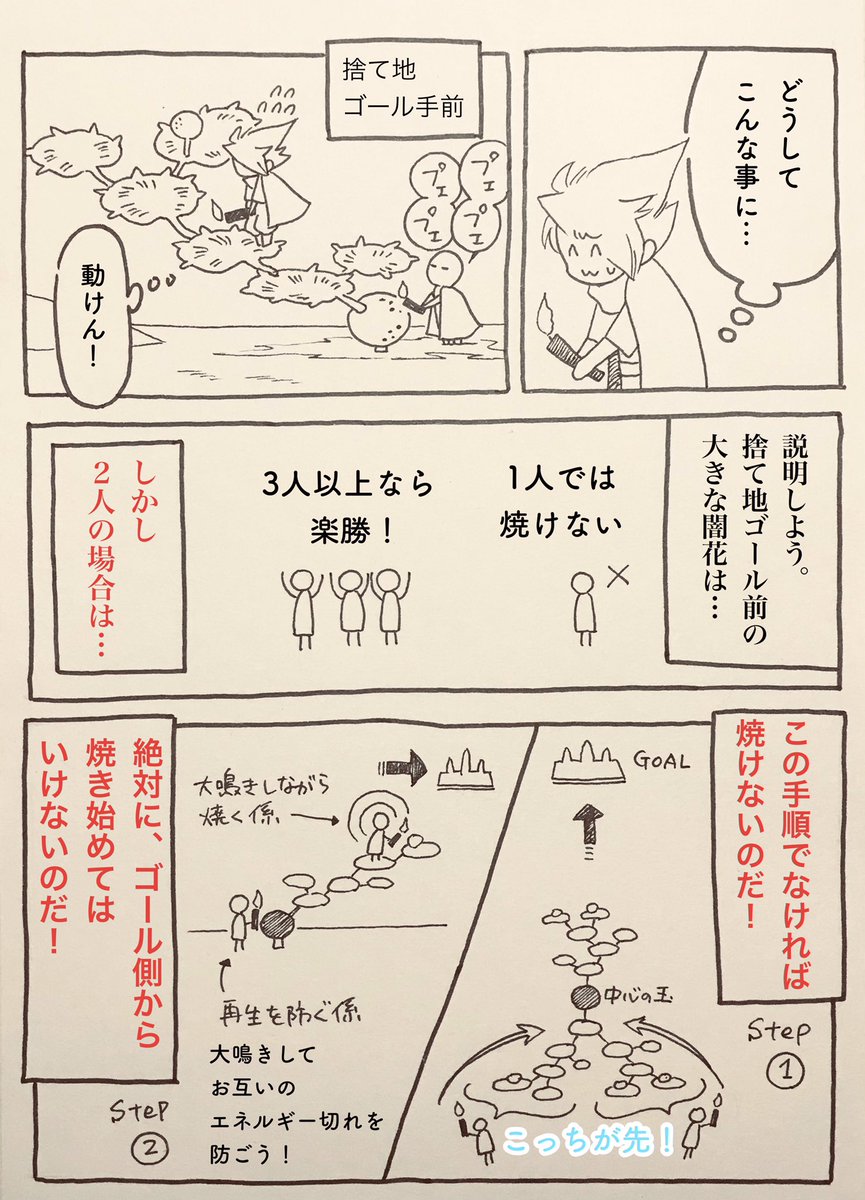 どうして
こんな事に…
捨て地
ゴール手前
プェ
プェ
プェ
プェ
動けん！
説明しよう。
捨て地ゴール前の
大きな闇花は…
1人では
焼けない
3人以上なら
楽勝！
しかし
2人の場合は…
この手順でなければ
焼けないのだ！
GOAL
中心の玉
Step
①
こっちが先！
絶対に、ゴール側から
焼き始めては
いけないのだ！
大鳴きしながら
焼く係
再生を防ぐ係
大鳴きして
お互いの
エネルギー切れを
防ごう！
Step
②